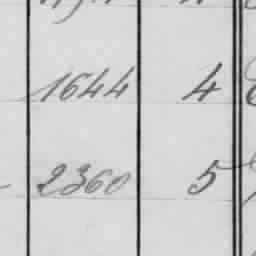 1644 4
2360 5